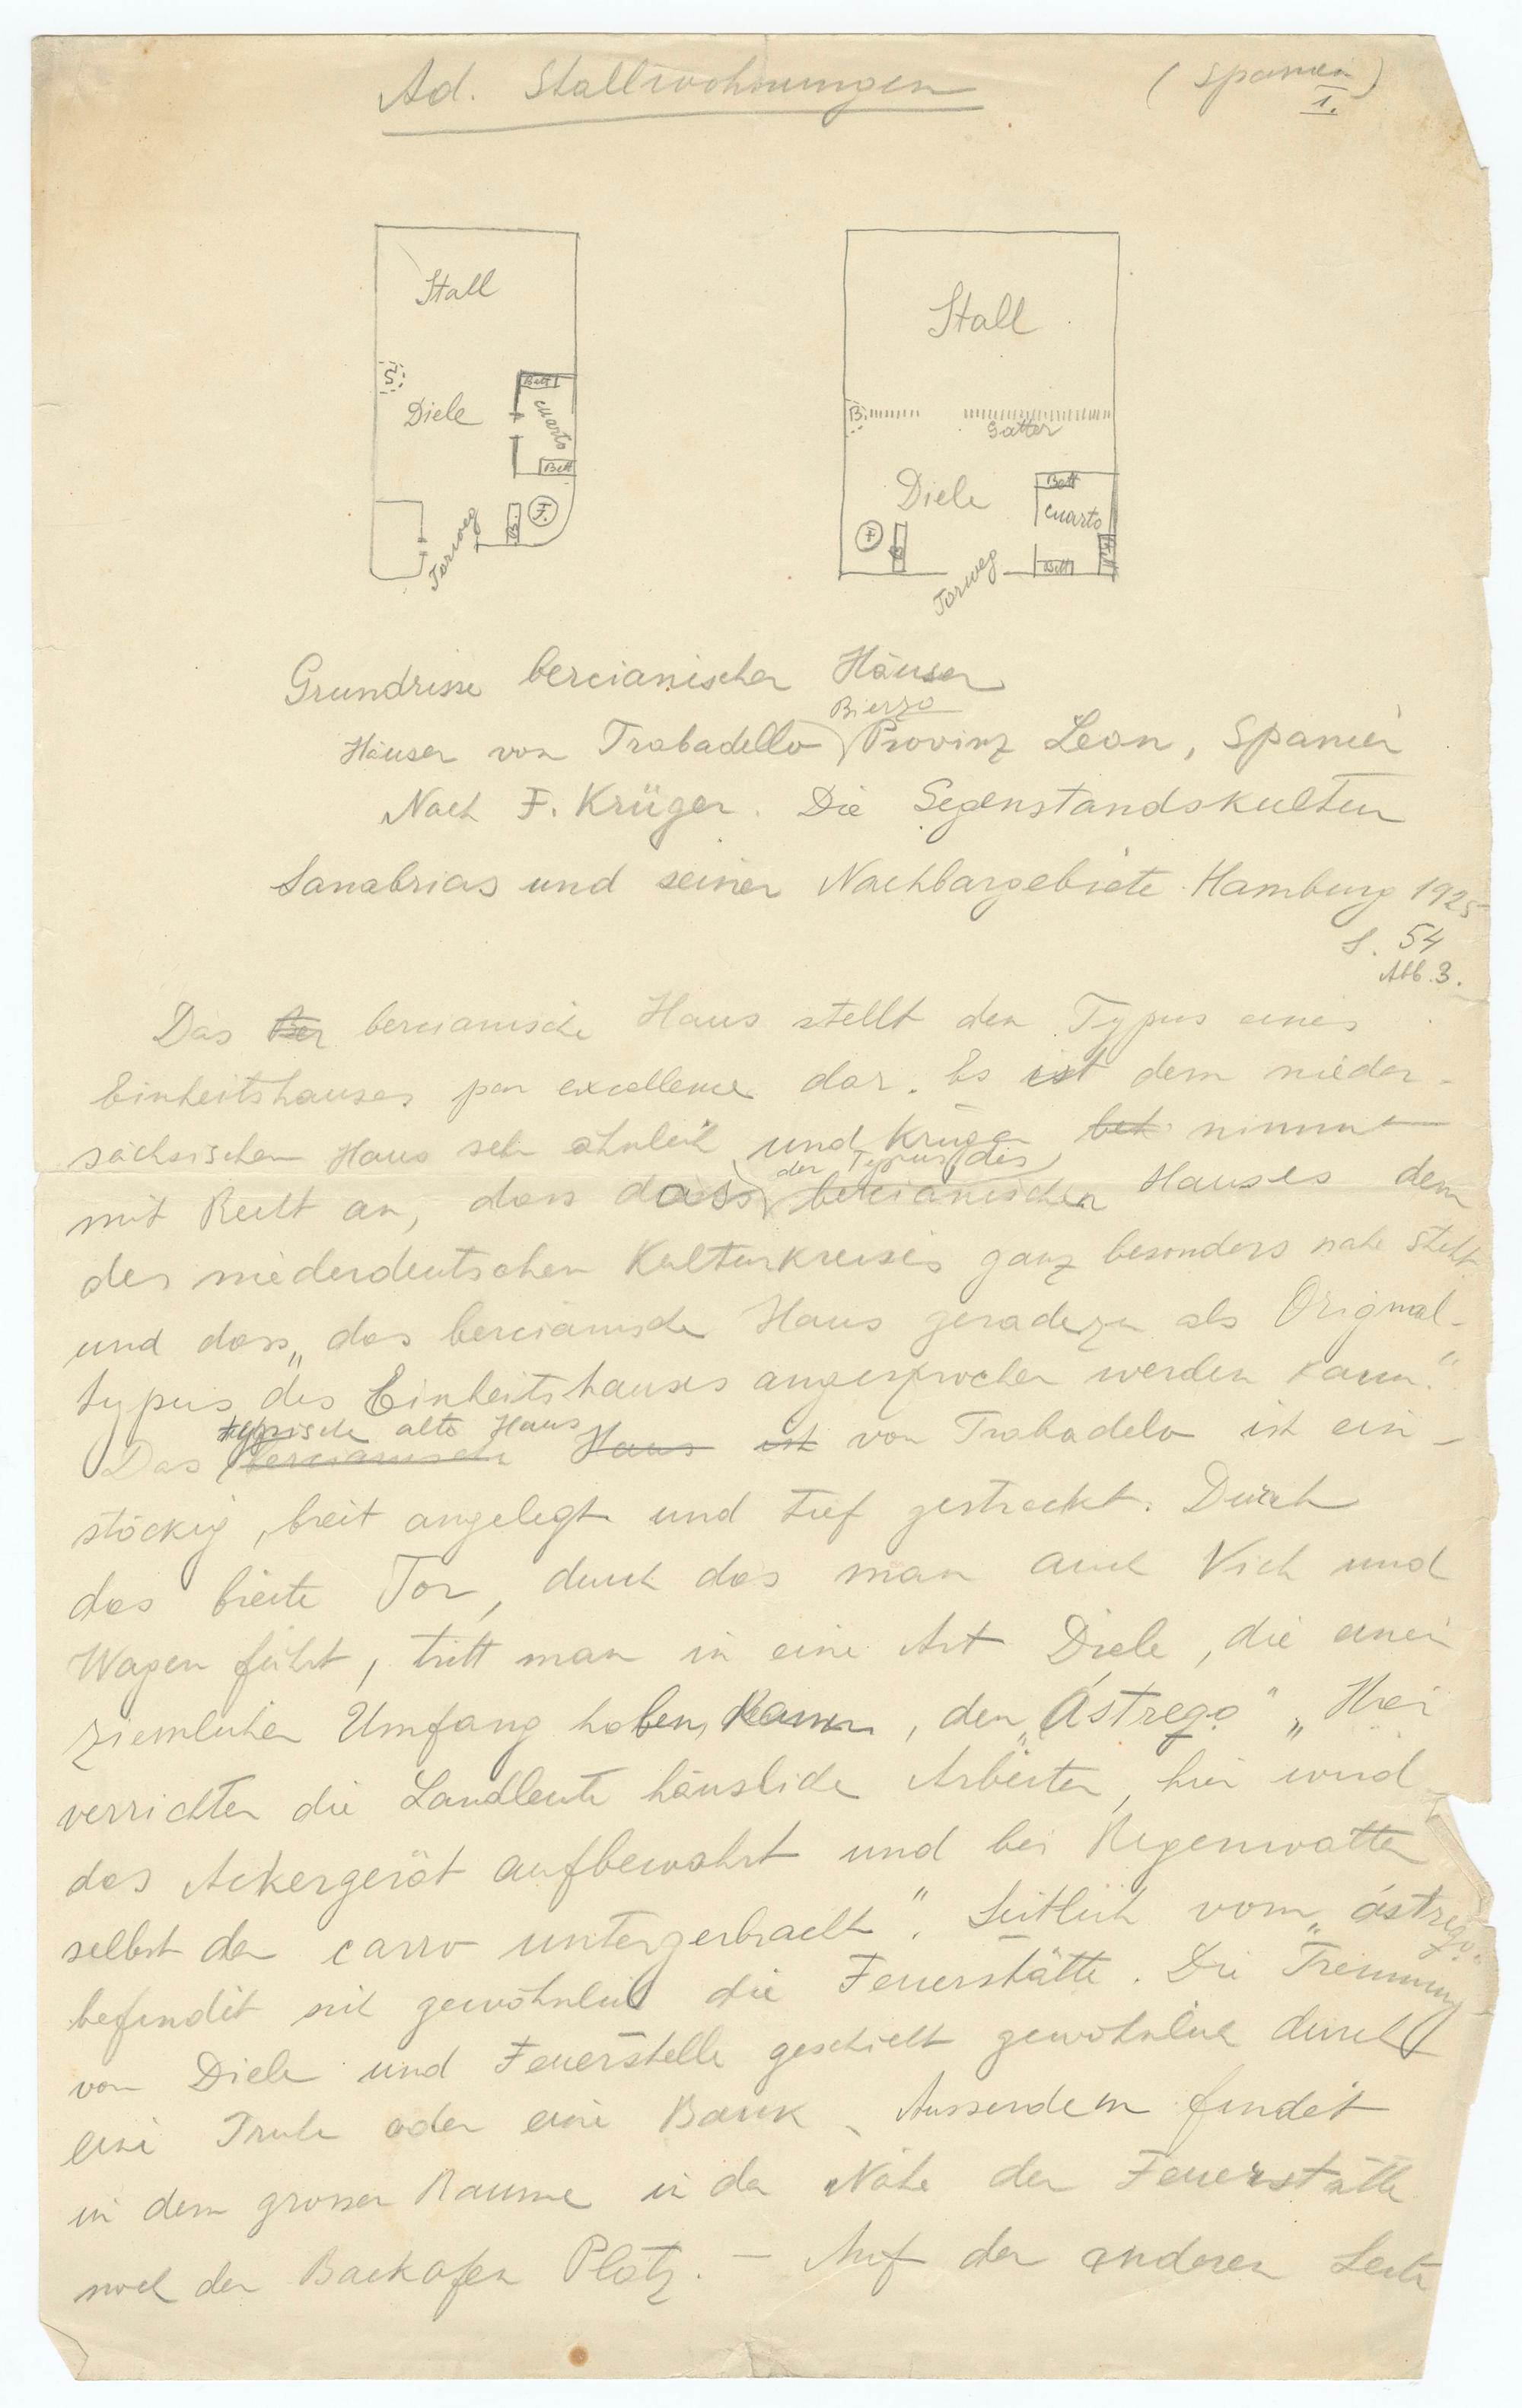 Ad. Stallwohnungen
(Spanien)
I.
Stall
S
Diele
Bett
cuarto
Bett
F.
B.
Torweg
Stall
B.
Gatter
Diele
Bett
cuarto
F
B
Bett
Torweg
Grundrisse bercianischer Häuser
Bierzo
Häuser von Trabadello Provinz Leon, Spanien
Nach F. Krüger. Die Gegenstandskultur
Sanabrias und seiner Nachbargebiete. Hamburg 1925
S. 54
Abb. 3.
Das Ber bercianische Haus stellt den Typus eines
Einheitshauses par excellence dar. Es ist dem nieder-
sächsischen Haus sehr ähnlich und Krüger bet nimmt
der Typus des
mit Recht an, dass dass bercianischen Hauses dem
des niederdeutschen Kulturkreises ganz besonders nahe steht
und dass „das bercianische Haus geradezu als Original-
typus des Einheitshauses angesprochen werden kann.“
typische alte Haus
Das bercianische Haus ist von Trabadelo ist ein-
stöckig, breit angelegt und tief gestreckt. Durch
das breite Tor, durch das man auch Vieh und
Wagen führt, tritt man in eine Art Diele, die einen
ziemlichen Umfang haben kann, den „ástrego“ „Hier
verrichten die Landleute häusliche Arbeiten, hier wird
das Ackergerät aufbewahrt und bei Regenwetter
selbst der carro untergebracht“. Seitlich vom „ástrego“
befindet sich gewöhnlich die Feuerstätte. Die Trennung
von Diele und Feuerstelle geschieht gewöhnlich durch
eine Truhe oder eine Bank. Ausserdem findet
in dem grossen Raume in der Nähe der Feuerstätte
noch der Backofen Platz. – Auf der anderen Seite